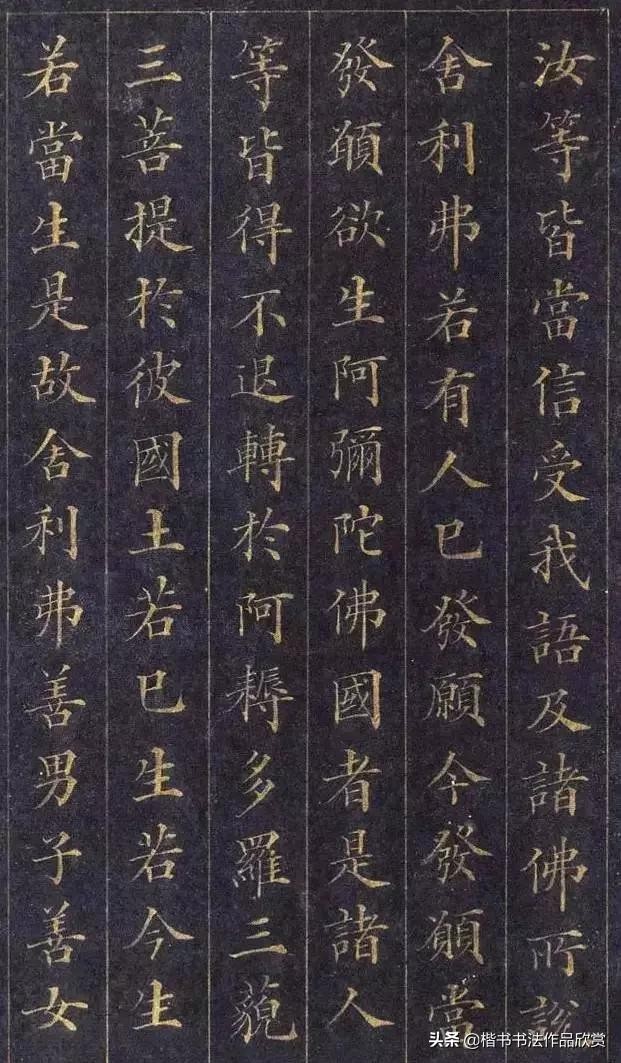 汝等皆當信受我語及諸佛所說
舍利弗若有人已發願今發願當
發願欲生阿彌陀佛國者是諸人
等皆得不退轉於阿耨多羅三藐
三菩提於彼國土若已生若今生
若當生是故舍利弗善男子善女
头条 @楷书书法作品欣赏